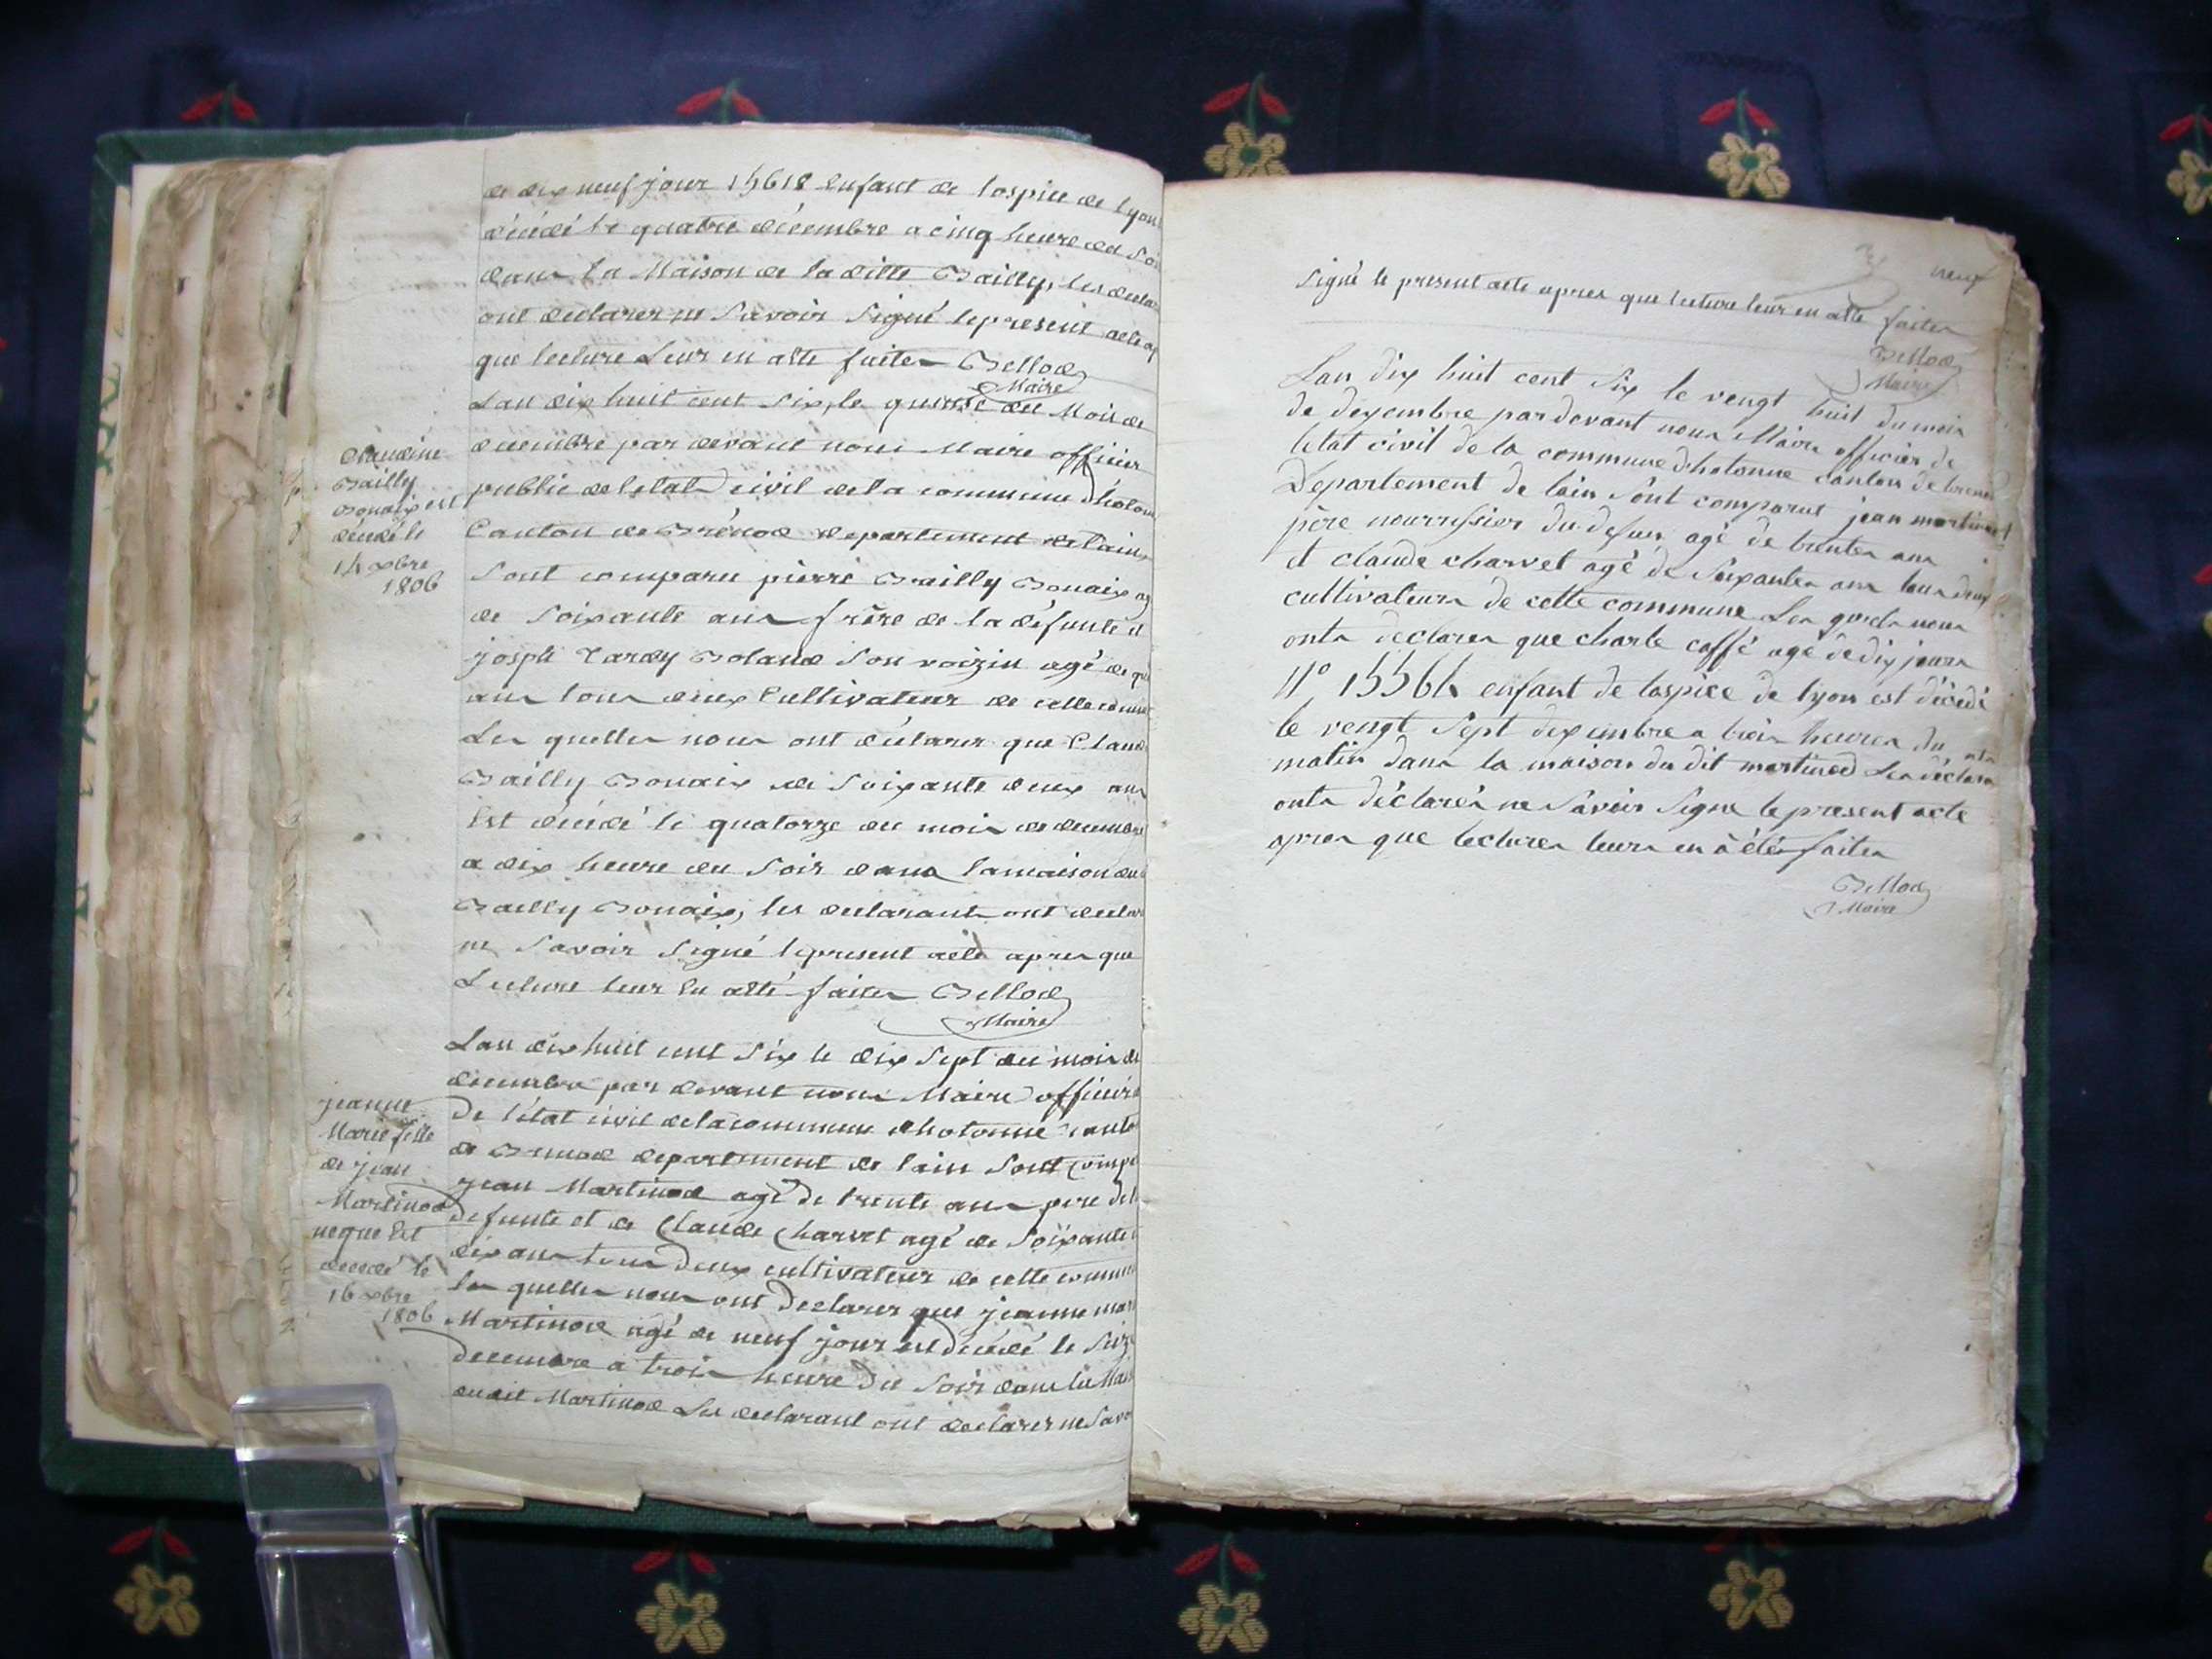 de dix neuf jour 15618 enfant de lospice de lyon
décédé le quatre décembre a cinq heure du
dans la Maison de la ditte Bailly, les
ont declarer ne Savoir Signé lepresent acte
que lecture Leur en aété faites Bellod
Maire
Lan dix huit cent Six, le quinze du Mois de
decembre par devant nous Maire officier
public de letat civil de la commune
Canton de Brénod departement de lain
Sont comparu pierre Bailly Bonaix
de Soixante ans frère de la défunte et
joseph Tardy Boland Son voizin agé de
ans tous deux Cultivateur de cette
Les quelles nous ont déclarer que
Bailly Bonaix de Soixante deux ans
Est décédé le quatorze du mois de decembre
a dix heure du Soir dans lamaison
Bailly Bonaix, les declarant ont
ne Savoir Signé lepresent acte apres que
Lecture leur En aété faites Bellod
Maire
Lan dix huit cent Six le dix Sept du mois de
décembre par devant nous Maire officier
De l'état civil delacommune dhotonne
de Brenod departement de lain Sont
jean Martinod agé de trente ans pere
defunte et de Claude Charvet agé de Soixante
dix ans tous deux cultivateur de cette
les quelles nous ont Declarer que jeanne
Martinod agé de neuf jour est décédé le
Decembre a trois heure du Soir dans la
dudit Martinod Les declarant ont declarer ne
Claudine
Bailly
Bonaix est
décédé le
14 xbre
1806
jeanne
Marie fille
de jean
Martinod
est
décédé le
16 xbre
1806
neuf
Signé le present acte apres que lecture leur en aété faites
Bellod
Maire
Lan dix huit cent Six le vengt huit du mois
de dexembre par devant nous Maire officier de
letat civil de la commune dhotonne canton de
Departement de lain Sont comparut jean martinod
père nourrissier du defun agé de trentes ans
et claude charvet agé de Soixantes ans tous deux
cultivateurs de cette commune Les quels nous
onts declarer que charle caffé agé de dix jours
N° 15564 enfant de lospice de lyon est décedé
le vengt Sept dexembre a trois heures du
matin dans la maison du dit martinod Les
onts déclarés ne Savoir Signe le present acte
apres que lectures leurs en à été faites
Bellod
Maire